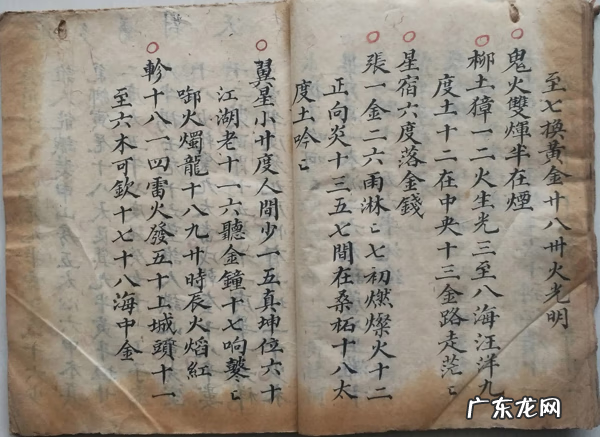 至七換黃金廿八卅火光明
鬼火雙煇半在煙
柳土獐一二火生光三至八海汪洋九
度土十二在中央十三金路走茫々
星宿六度落金錢
張一金二六雨淋々七初燃燦火十二
正向炎十三五七間在桑柘十八太
度土吟々
翼星小廿度人間少一五真坤位六十
江湖老十一六聽金鐘十七响鼕々
啣火燭龍十八九廿時辰火熖紅
軫十八一四雷火發五十上城頭十一
至六木可欽十七十八海中金
广东龙网